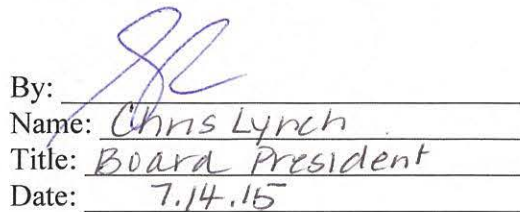 By:
Name: Chris Lynch
Title: Board President
Date: 7.14.15